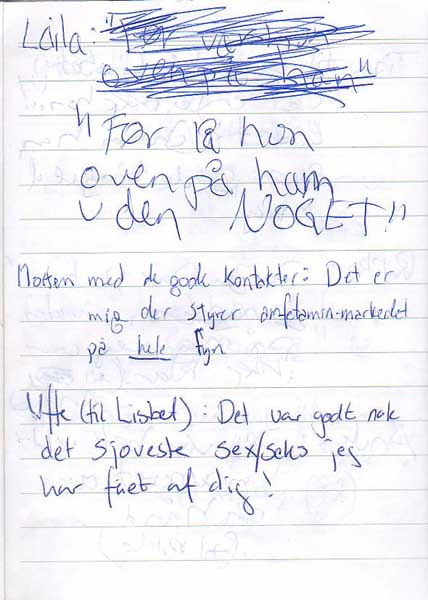 Laila: "Før var hun
ovenpå ham"
"Før lå hun
ovenpå ham
uden NOGET!"
Morten med de gode kontakter: Det er
mig der styrer amfetamin-markedet
på hele Fyn
Uffe (til Lisbet): Det var godt nok
det sjoveste sex/scko jeg
har fået af dig!